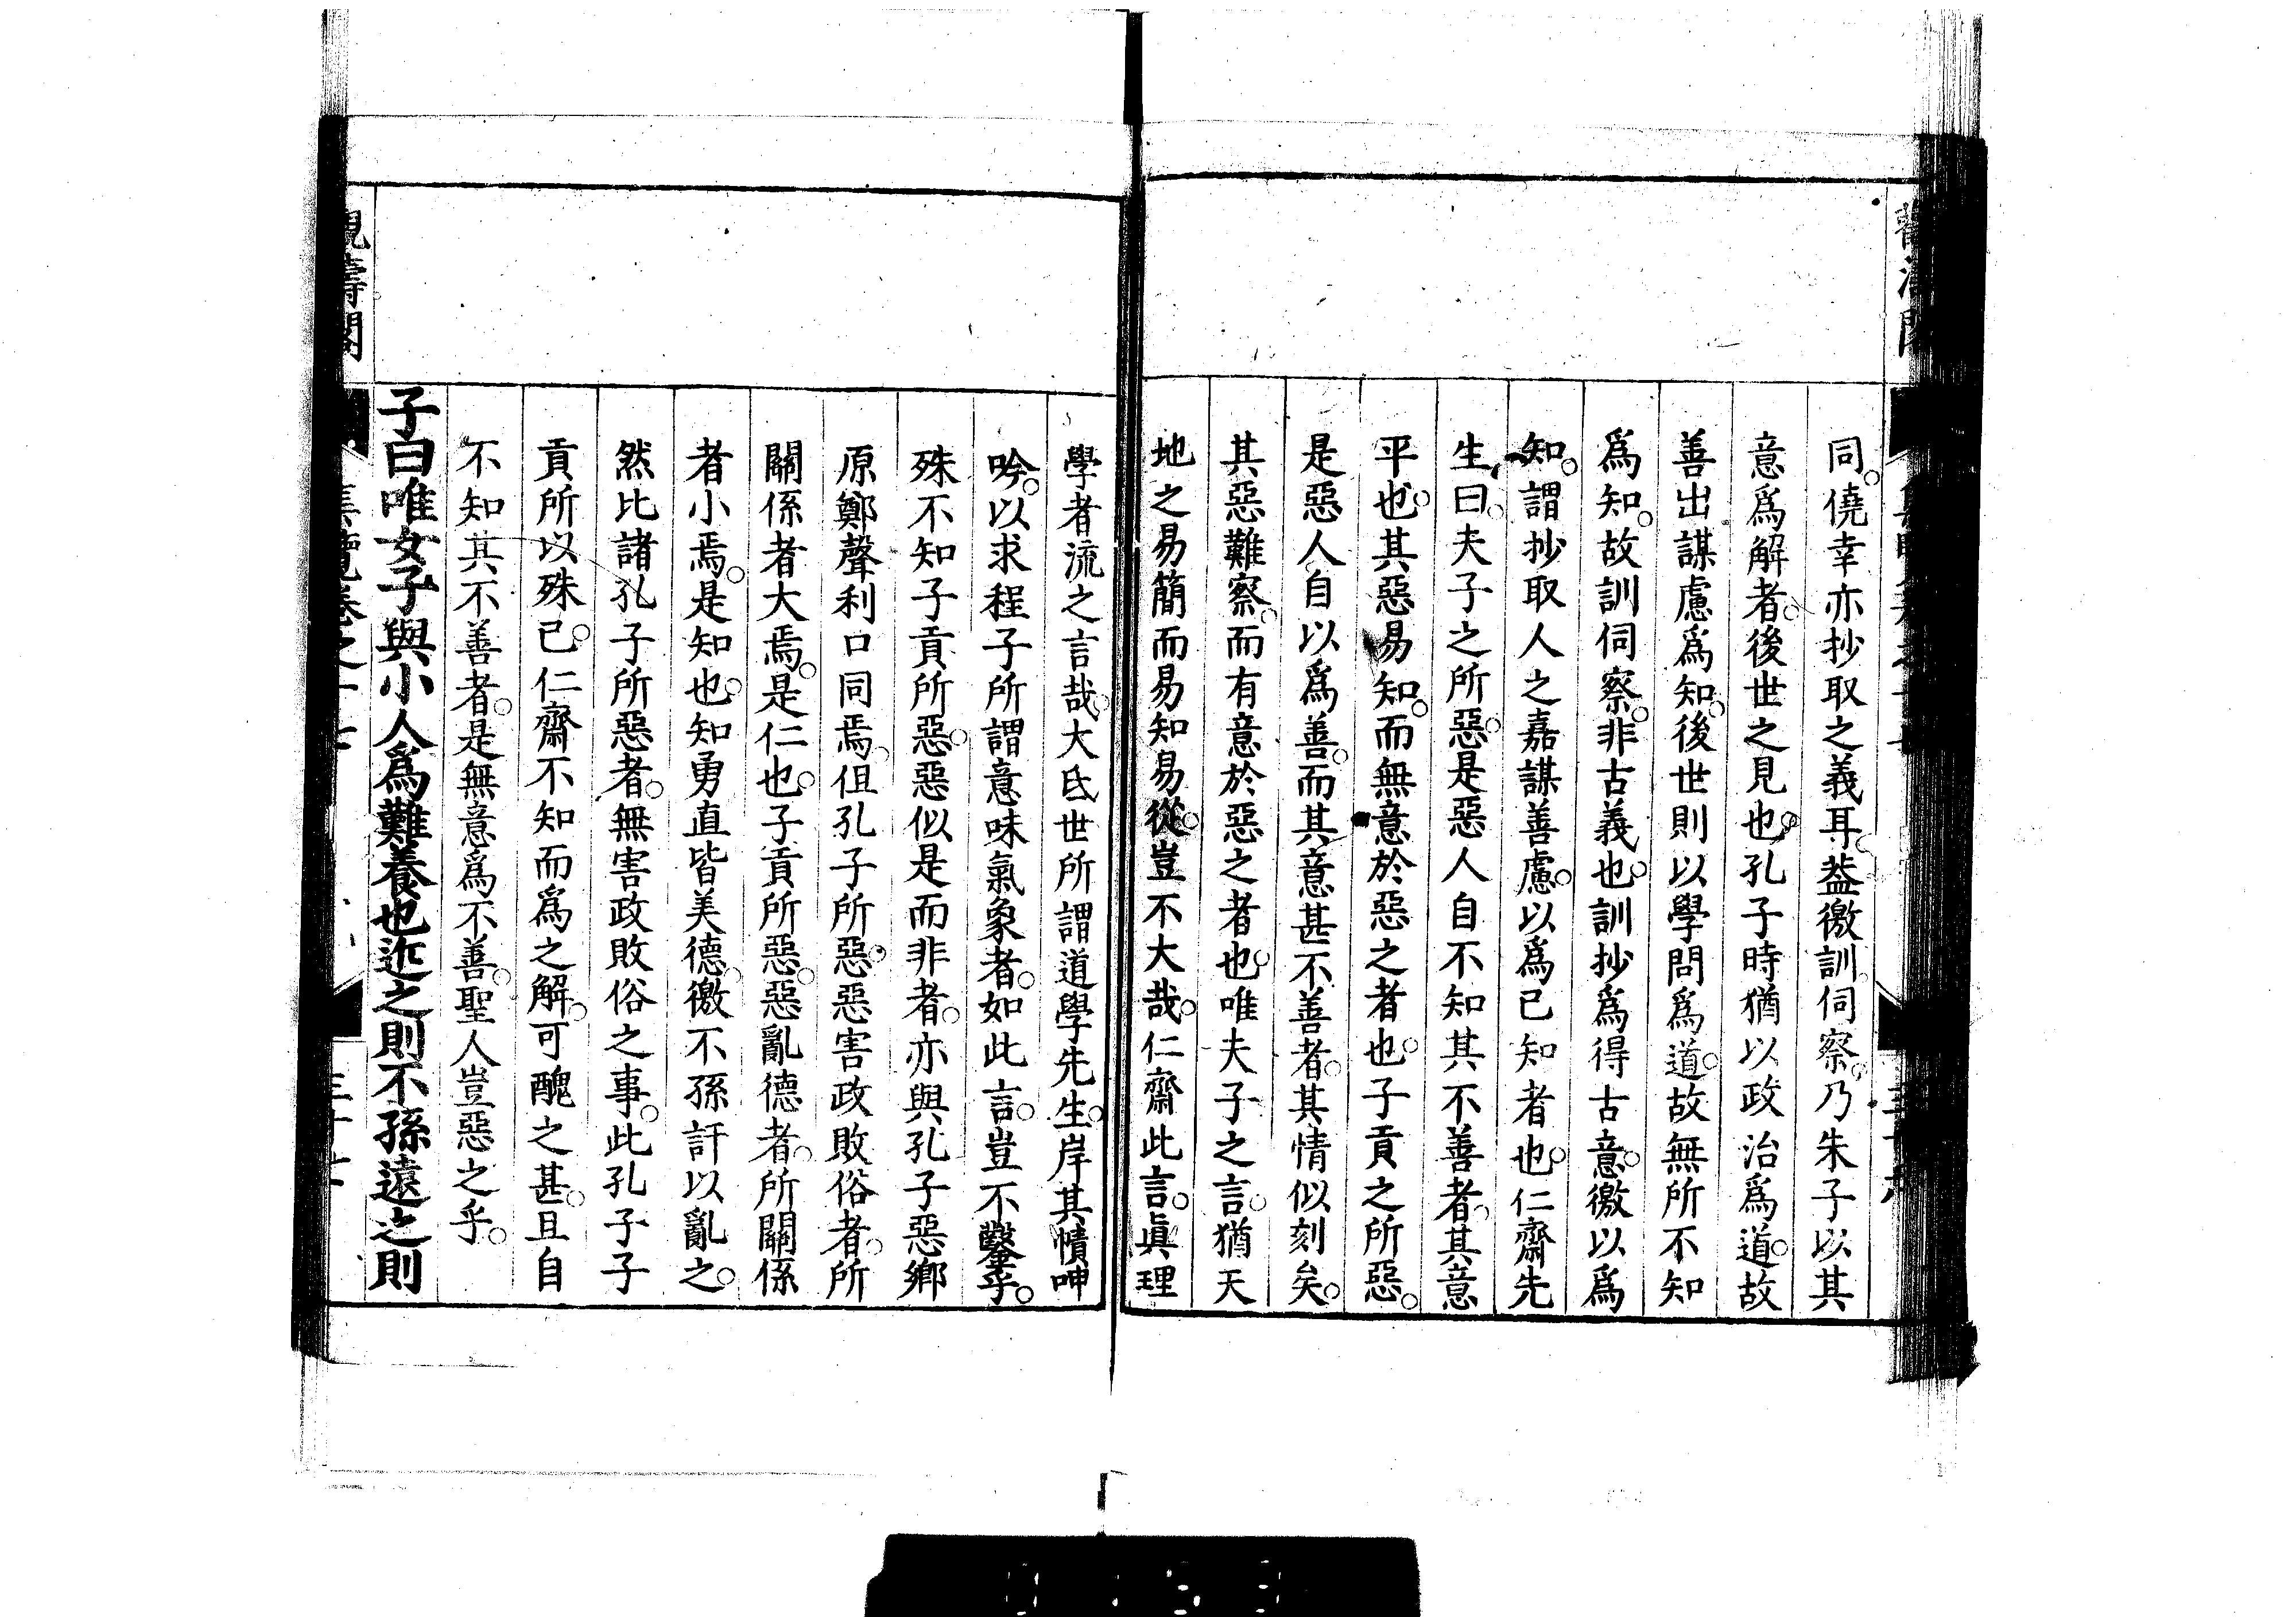 同。僥幸亦抄取之義耳。葢徼訓伺察。乃朱子以其
意爲解者。後世之見也。孔子時猶以政治爲道。故
善出謀慮爲知。後世則以學問爲道。故無所不知
爲知。故訓伺察。非古義也。訓抄爲得古意。徼以爲
知。謂抄取人之嘉謀善慮。以爲已知者也。仁齋先
生曰。夫子之所惡。是惡人自不知其不善者。其意
平也。其惡易知。而無意於惡之者也。子貢之所惡。
是惡人自以爲善。而其意甚不善者。其情似刻矣。
其惡難察。而有意於惡之者也。唯夫子之言。猶天
地之易簡而易知易從。豈不大哉。仁齋此言。眞理
學者流之言哉。大氐世所謂道學先生。岸其幘呻
吟。以求程子所謂意味氣象者。如此言。豈不鑿乎。
殊不知子貢所惡。惡似是而非者。亦與孔子惡鄉
原鄭聲利口同焉。但孔子所惡。惡害政敗俗者。所
關係者大焉。是仁也。子貢所惡。惡亂德者。所關係
者小焉。是知也。知勇直皆美德。徼不孫訐以亂之。
然比諸孔子所惡者。無害政敗俗之事。此孔子子
貢所以殊已。仁齋不知而爲之解。可醜之甚。且自
不知其不善者。是無意爲不善。聖人豈惡之乎。
子曰唯女子與小人爲難養也近之則不孫遠之則
觀濤閣
集覽卷之十七
三十七